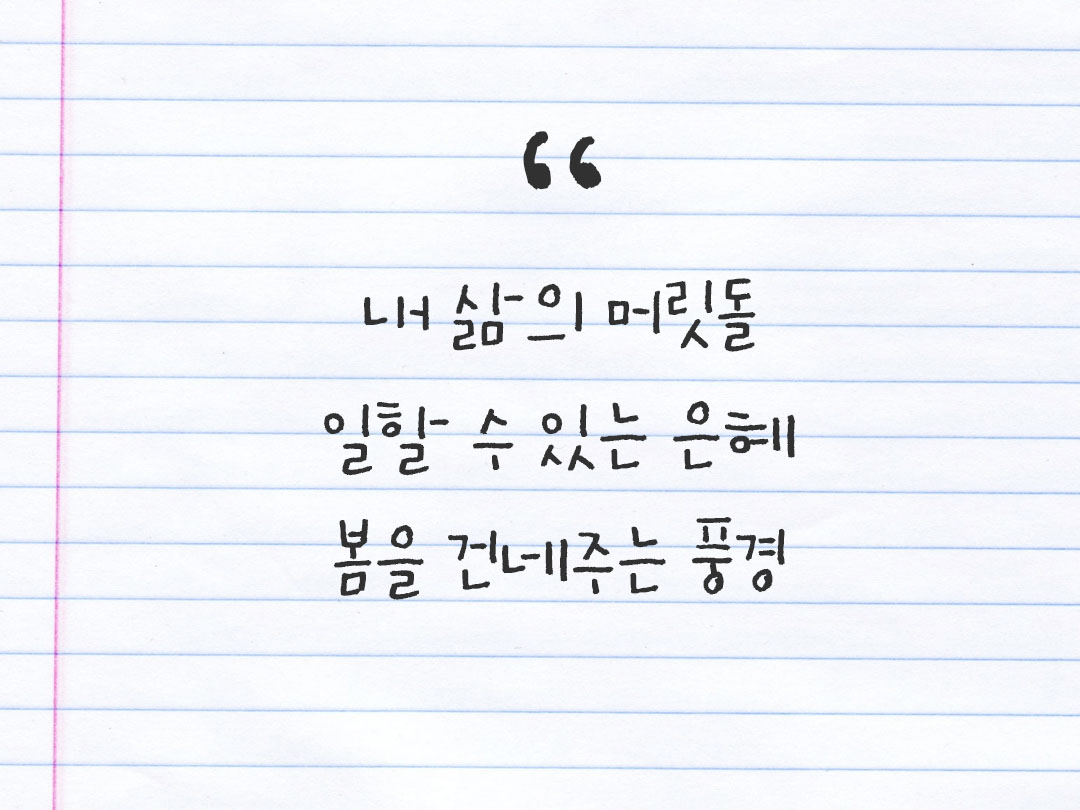 “
내 삶의 머릿돌
일할 수 있는 은혜
봄을 건네주는 풍경